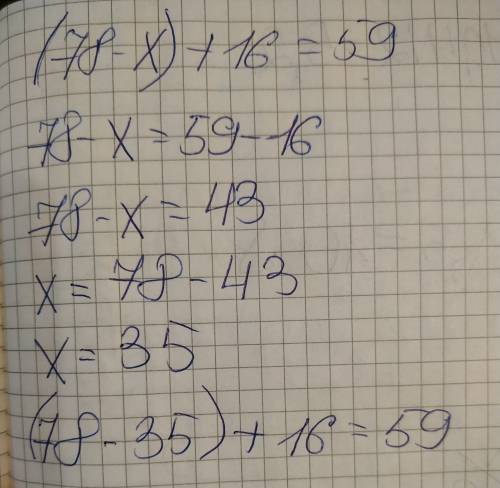 (78-x)+16=59
78-x=59-16
78-x=43
x=78-43
x=35
(78-35)+16=59